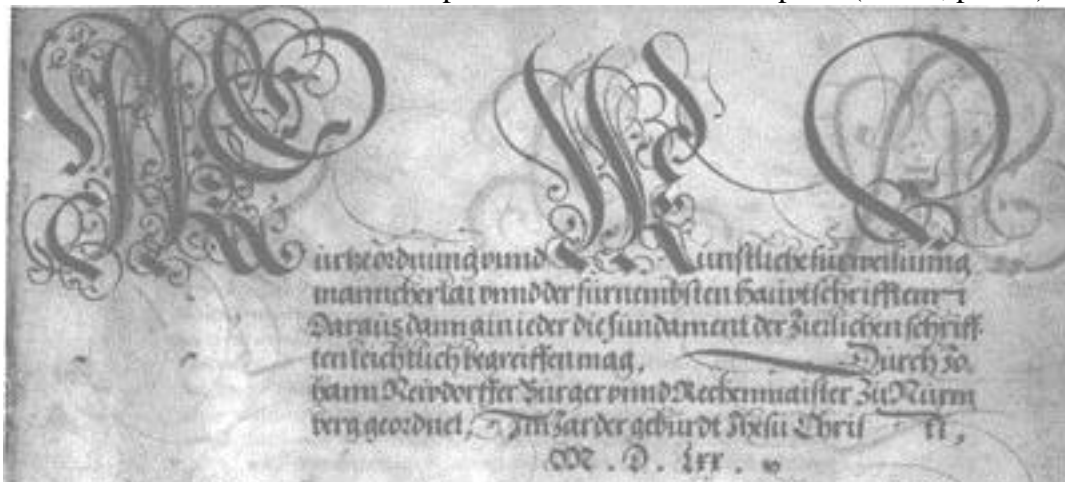 Kurtze ordnung vnnd Kunstliche fürweisunng
mannicherlai vnnd der fürnembsten Hauptschrifften
Daraus dann ain ieder die fundament der Zierlichen schriff-
ten leichtlich begreiffen mag. Durch Jo.
hann Newdorffer Burger vnnd Rechenmaister Zu Nurm
berg geordnet, Im Jar der geburdt Jhesu Chris ti,
M . D . Lxx .